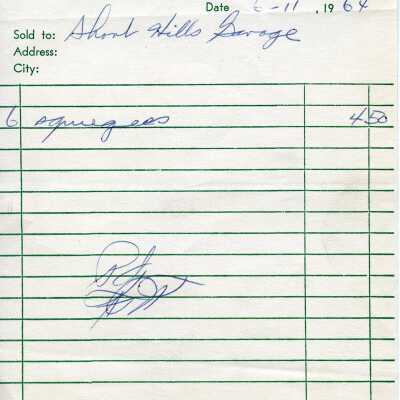 Date 6-11, 1964
Sold to: Short Hills Garage
Address:
City:
6 squegees 4 50